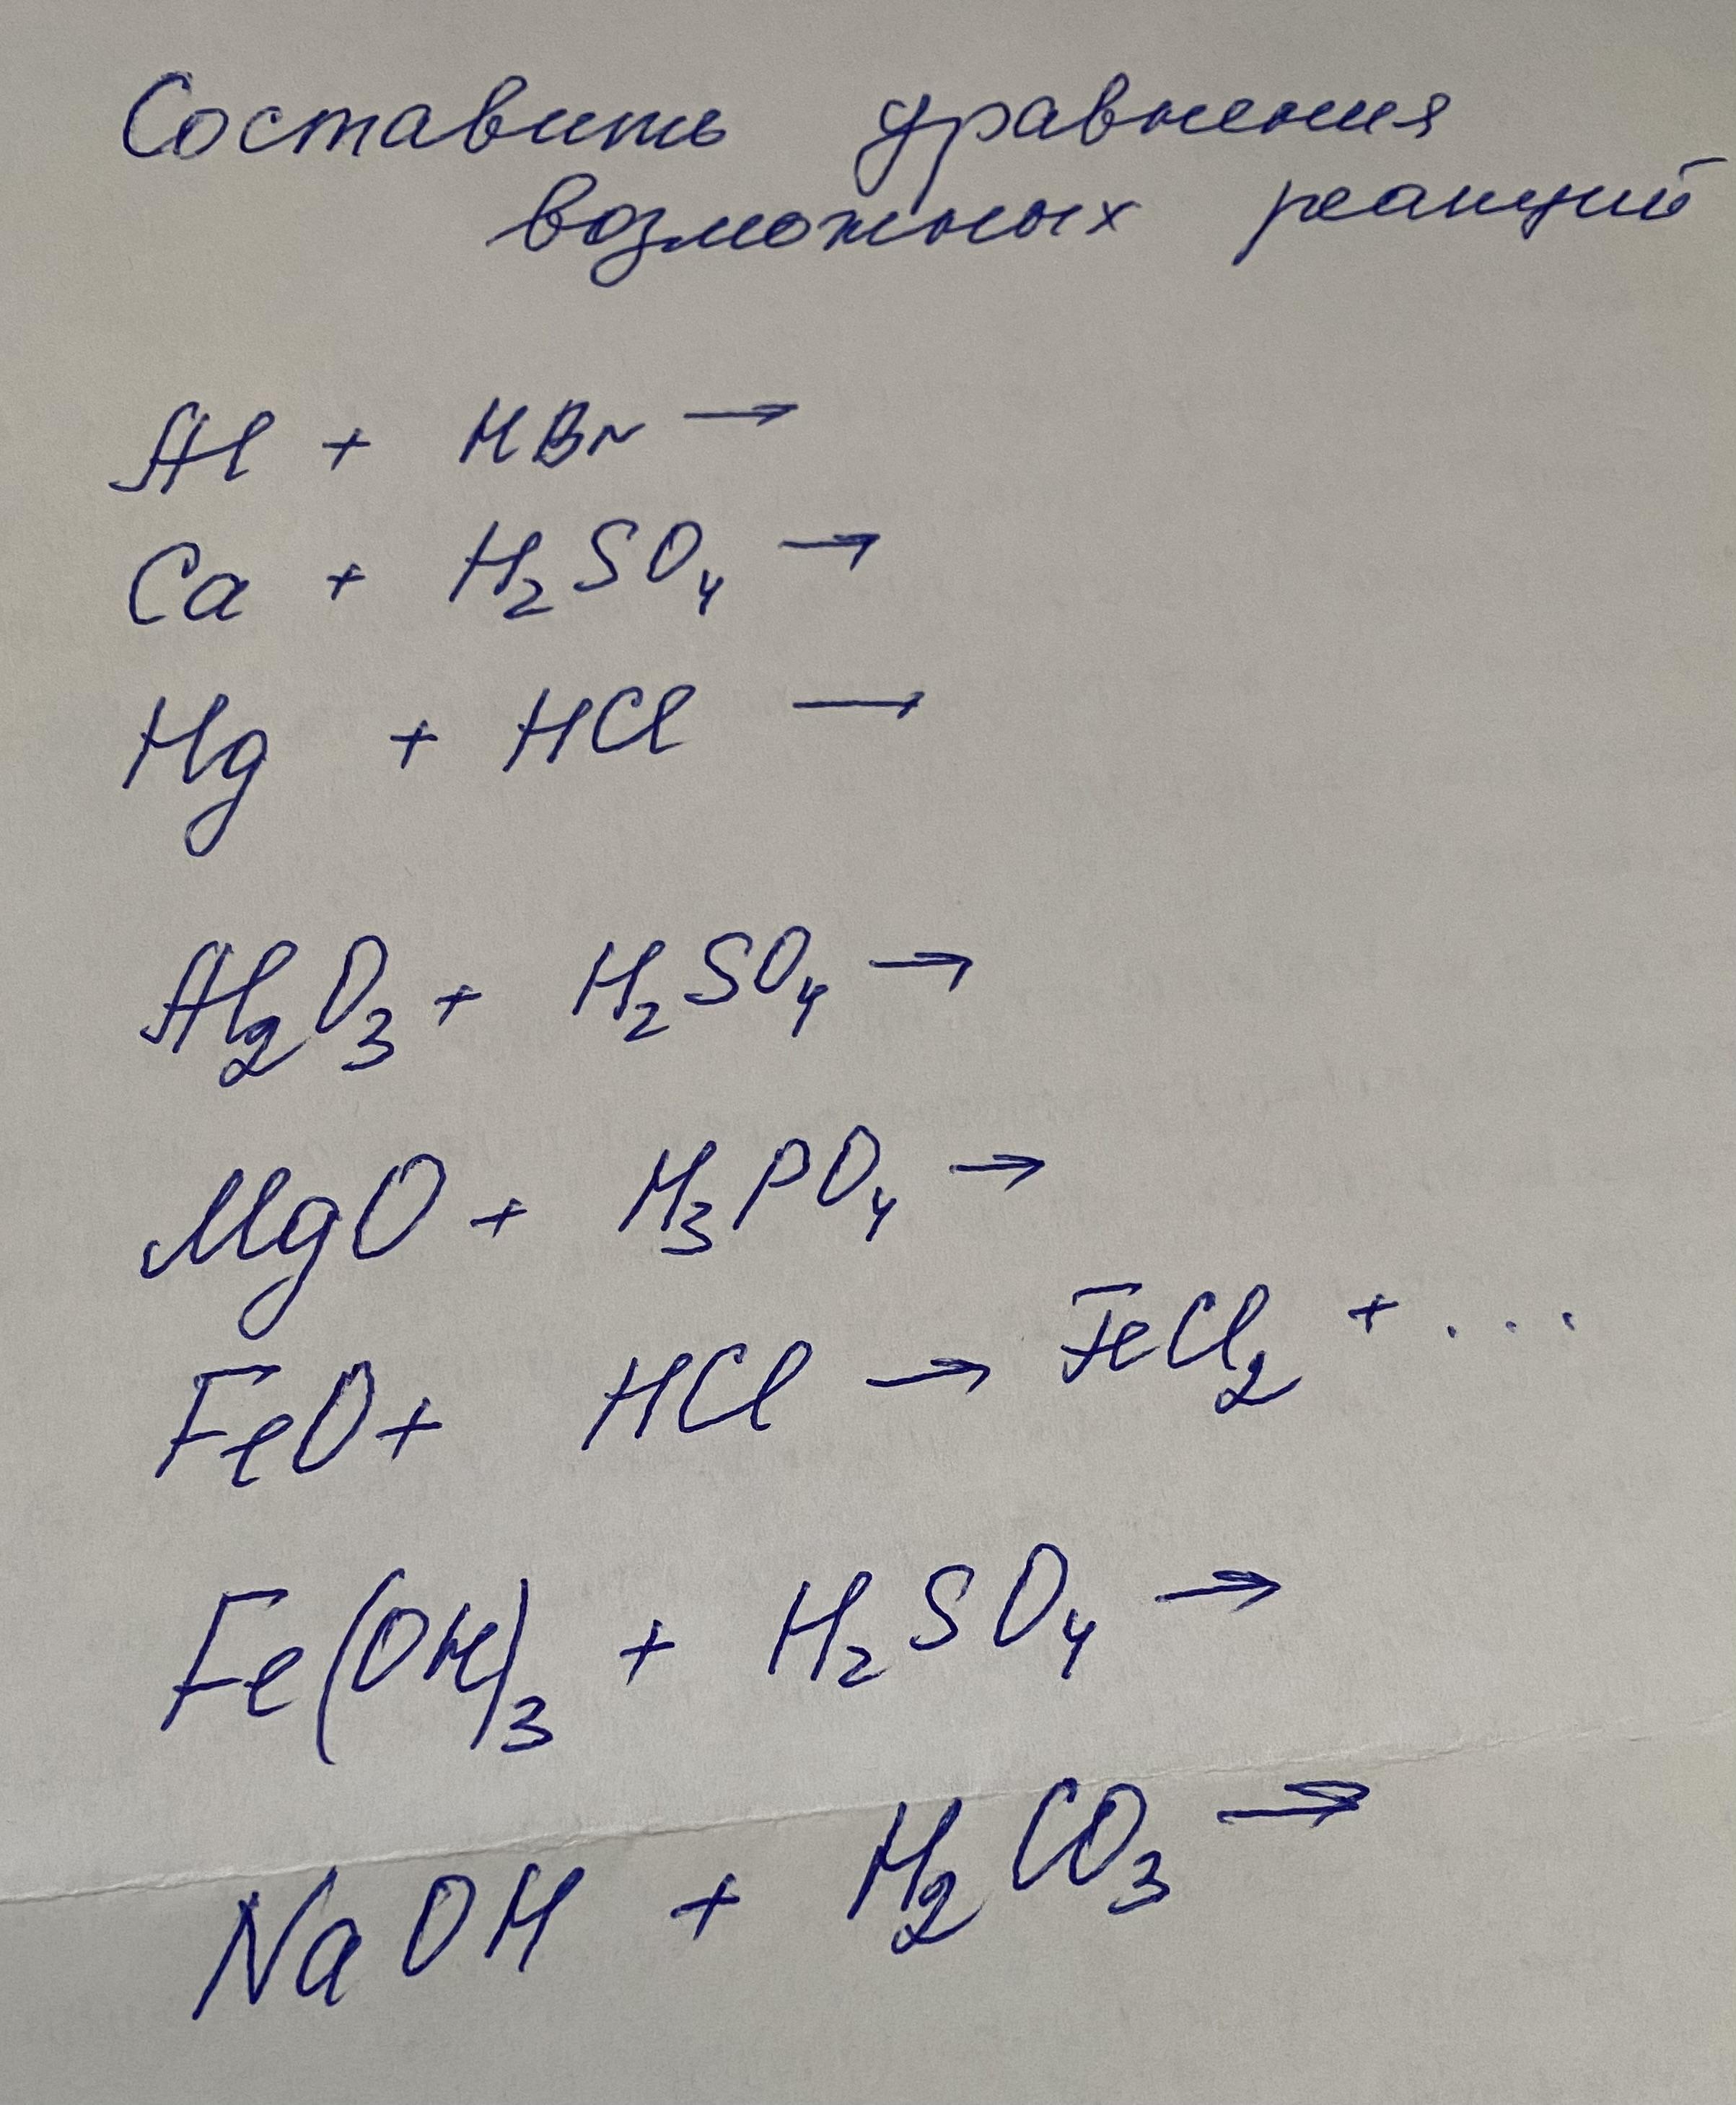 Составить уравнения
возможных реакций
Al + HBr →
Ca + H₂SO₄ →
Hg + HCl →
Al₂O₃ + H₂SO₄ →
MgO + H₃PO₄ →
FeO + HCl → FeCl₂ + ...
Fe(OH)₃ + H₂SO₄ →
NaOH + H₂CO₃ →